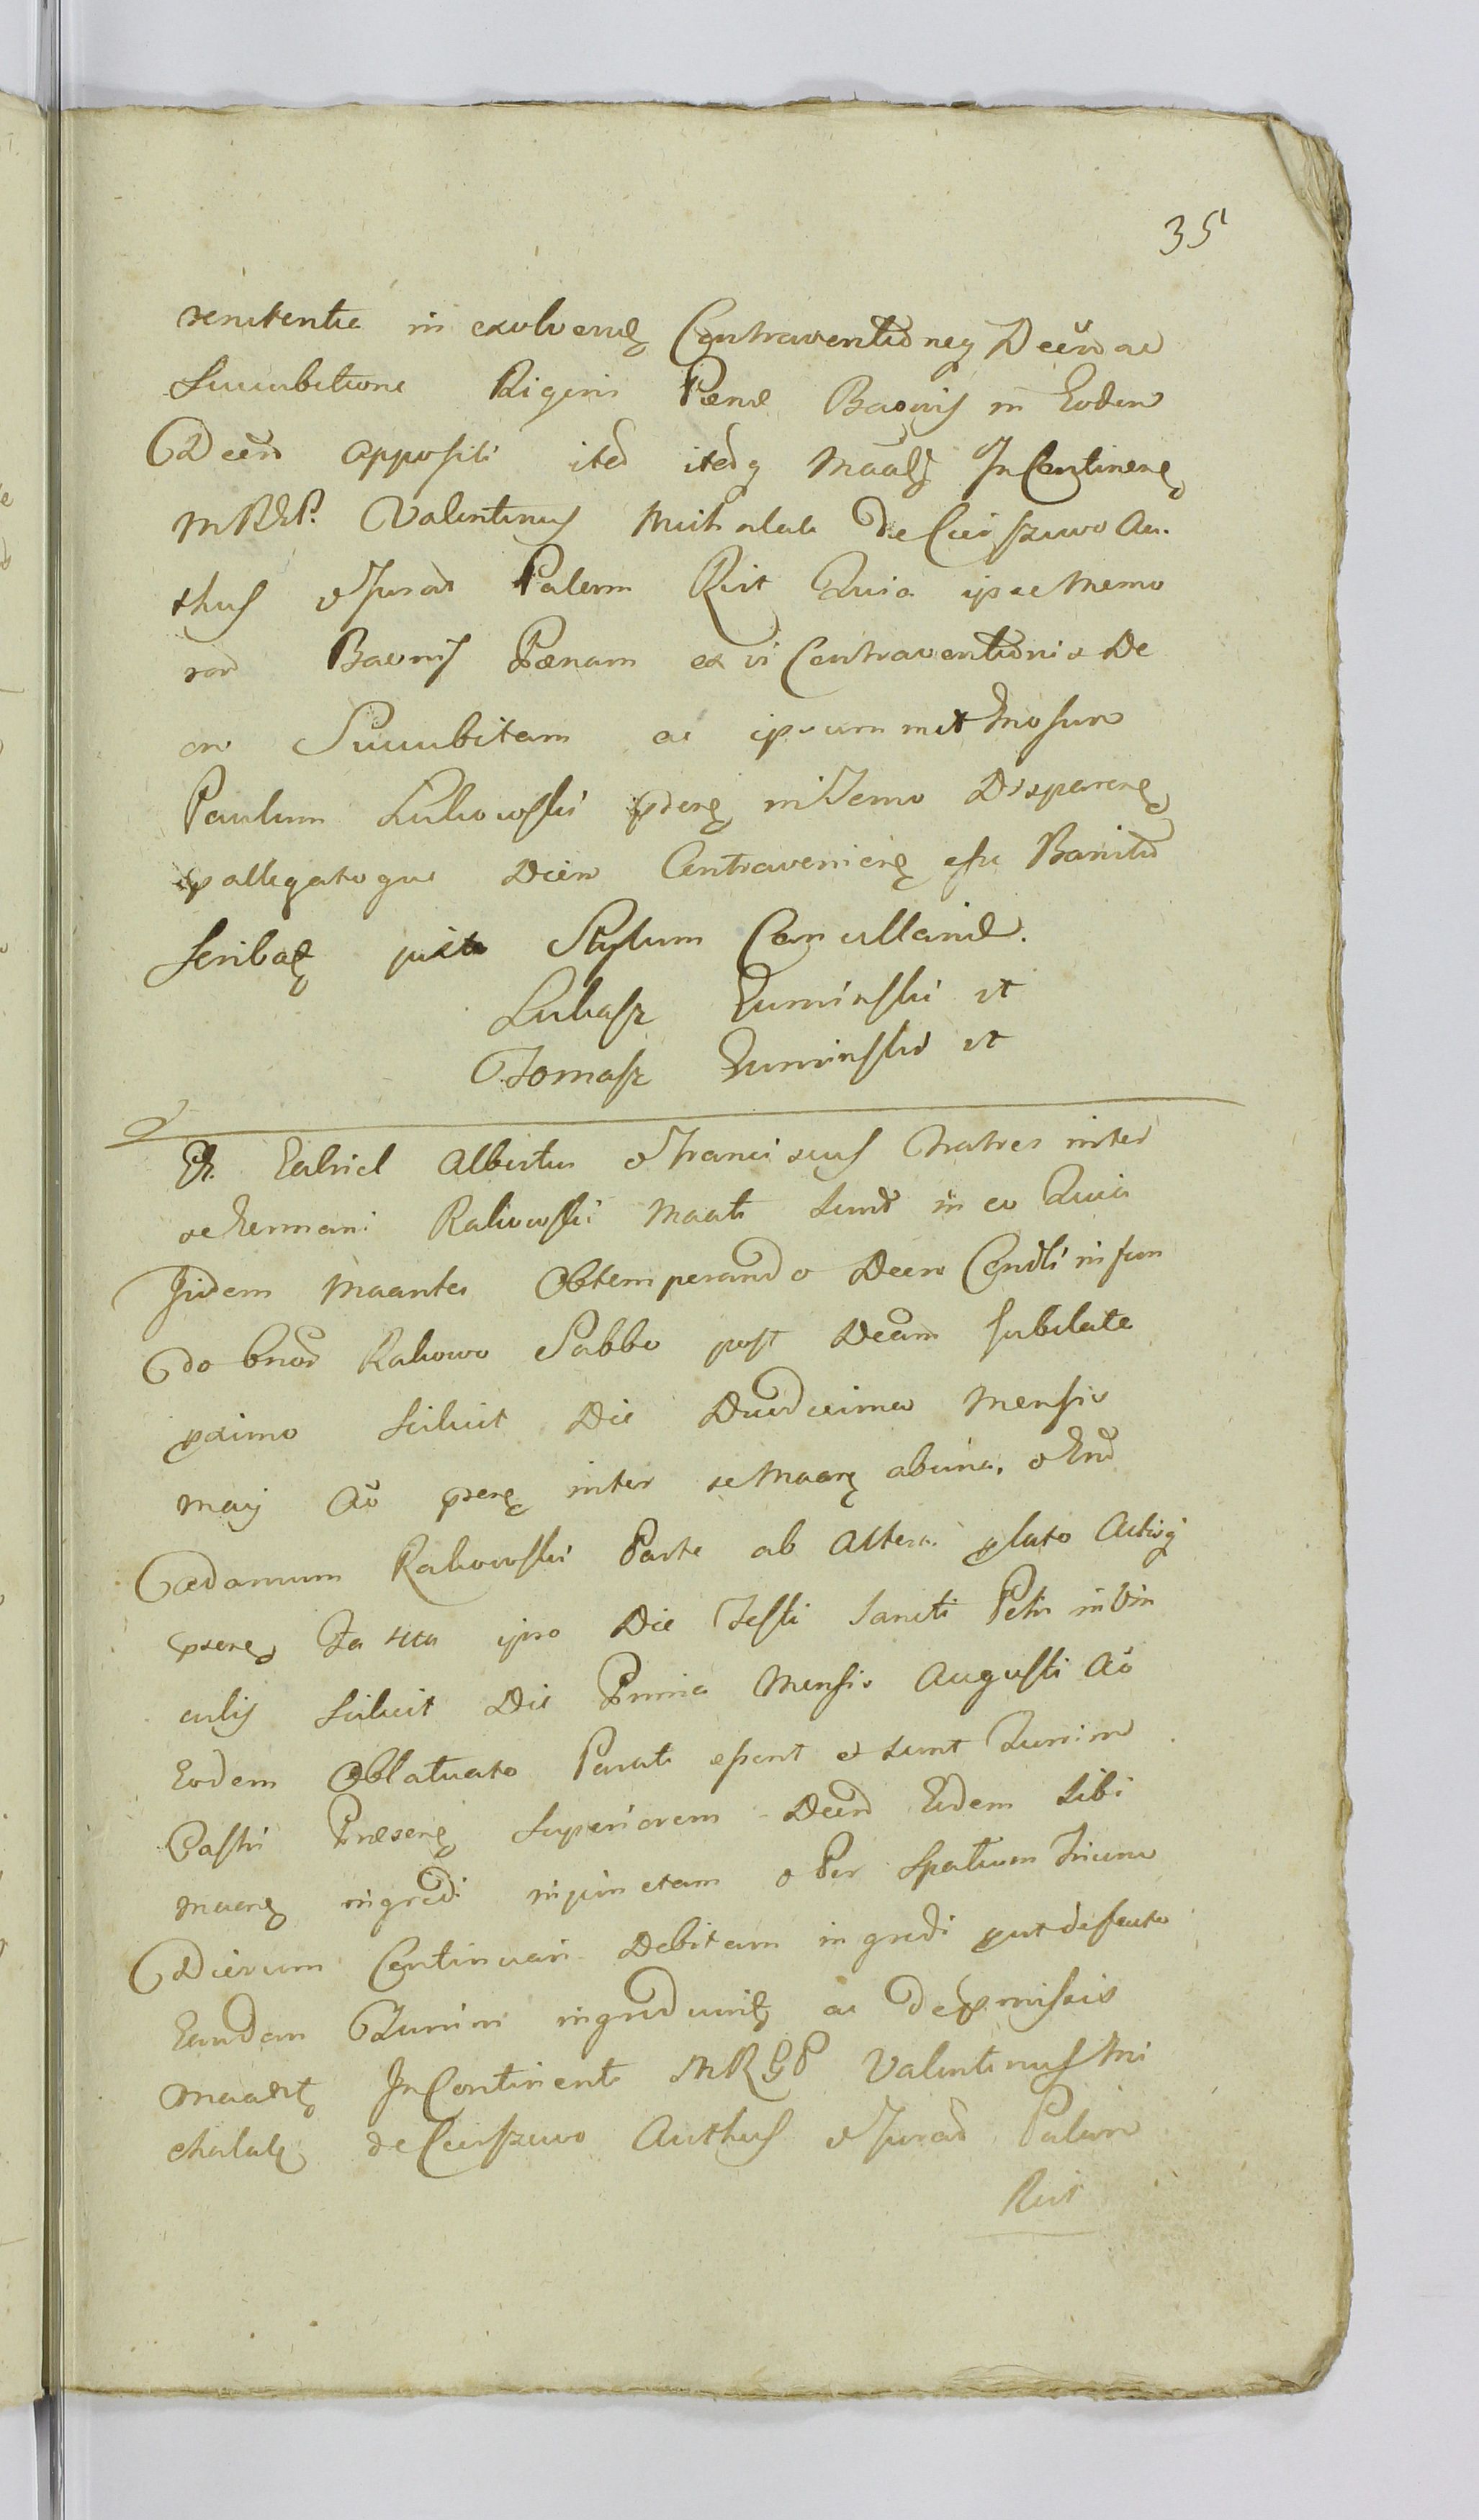 35
renitentie in exolvend Contraventioneq Decro ac
Succubitione Rigoris Pænæ Baonis in Eodem
Decro appositi ited itedq Maals In Continen
MRGP. Valentinus Michalak de Cierszewo Au
thus et Jurat Palem Rit Quia ipse Memo
rat Baonis Pænam ex vi Contraventionis De
cro Succubitam ac ipsummet Gnosum
Paulum Lukowski pden in Termo Disparen
pallegatoque Decro Contravenien esse Banitu
scribal juxta Stylum Cancellariæ.
Lukasz Zuminski et
Tomasz Zuminski et
G. Gabriel Albertus et Franciscus Fratres inter
se Germani Rakowski Maati sunt in eo Quia
Iidem Maantes Obtemperando Decro Condli in fun
do bnor Rakowo Sabbo post Dcam Jubilate
pximo scilicet Die Duodecima Mensis
Maij Ao psen inter se Maan ab una, et Gnd
Adamum Rakowski Parte ab Altera plato Actisq
psen ipso Die Festi Sancti Petri in Vin
culis scilicet Die Prima Mensis Augusti Ao
Eodem Oblatuato Parati essent et sunt Turrim
Castri Præsen Superiorem Decro Eodem sibi
Maan ingredi injunctam et Per spatium Trium
Dierum Continuari Debitam ingredi put de facto
Eandem Turrim ingrediunt ac de pmissis
Maant In Continenti MRGP Valentinus Mi
chalak de Cierszewo Authus et Jurat Palem
Rit